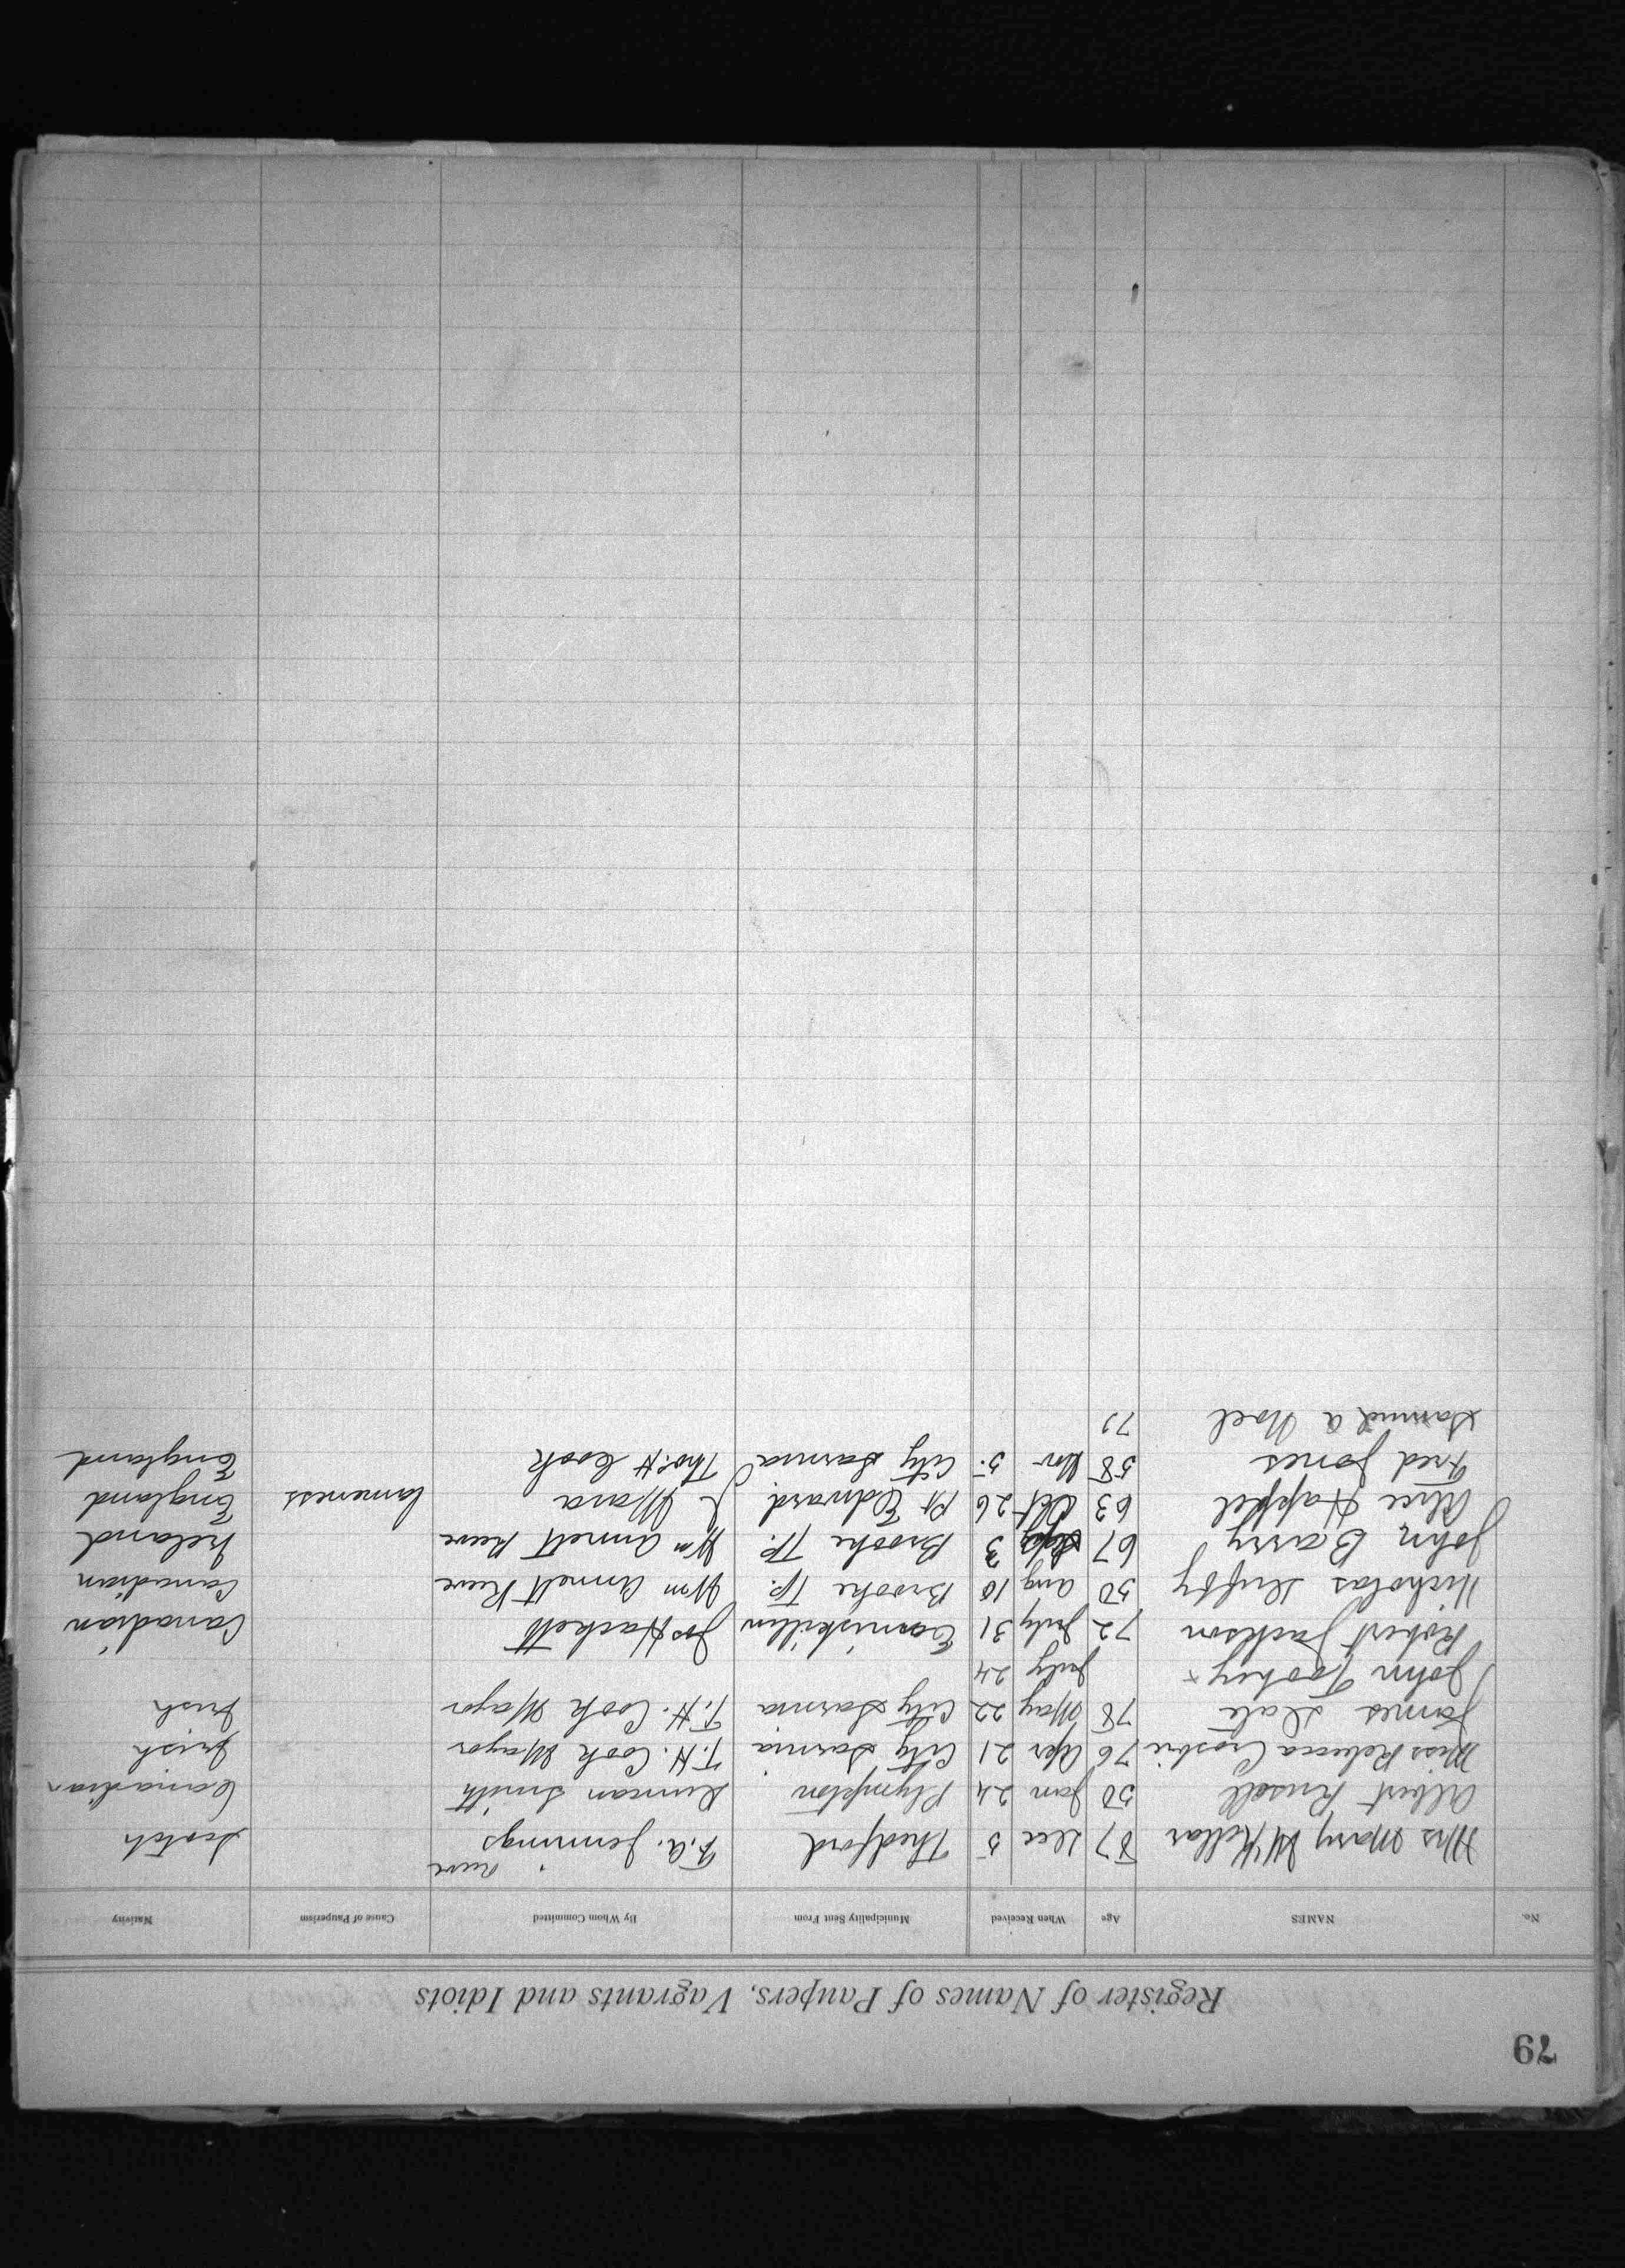 79
Register of Names of Paupers, Vagrants and Idiots
No. NAMES Age When Received Municipality Sent From By Whom Committed Cause of Pauperism Nativity
Mrs Mary McKellar 87 Dec 5 Thedford F.A. Jennings Reeve Scotch
Albert Rusell 50 Jan 24 Plympton Duncan Smith Canadian
Miss Rebecca Crosbie 76 Apr 21 City Sarnia T.H. Cook Mayor Irish
James Dale 78 May 22 City Sarnia T.H. Cook Mayor Irish
John Toohey x July 24
Robert Jackson 72 July 31 Enniskillen Jos Hackett Canadian
Nicholas Duffy 50 Aug 10 Brooke Tp. Wm Annett Reeve Canadian
John Barry 67 3 Brooke Tp. Wm Annett Reeve Ireland
Alice Happel 63 Oct 26 Pt Edward J Mara lameness England
Fred Jones 58 Nov 5 City Sarnia Thos. H Cook England
Samuel A Noel 77